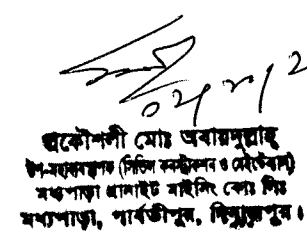 প্রকৌশলী মোঃ অবায়দুল্লাহ
উপ-মহাব্যবস্থাপক (সিভিল কনস্ট্রাকশন ও মেইন্টেন্যান্স)
মধ্যপাড়া গ্রানাইট মাইনিং কোং লিঃ
মধ্যপাড়া, পার্বতীপুর, দিনাজপুর।